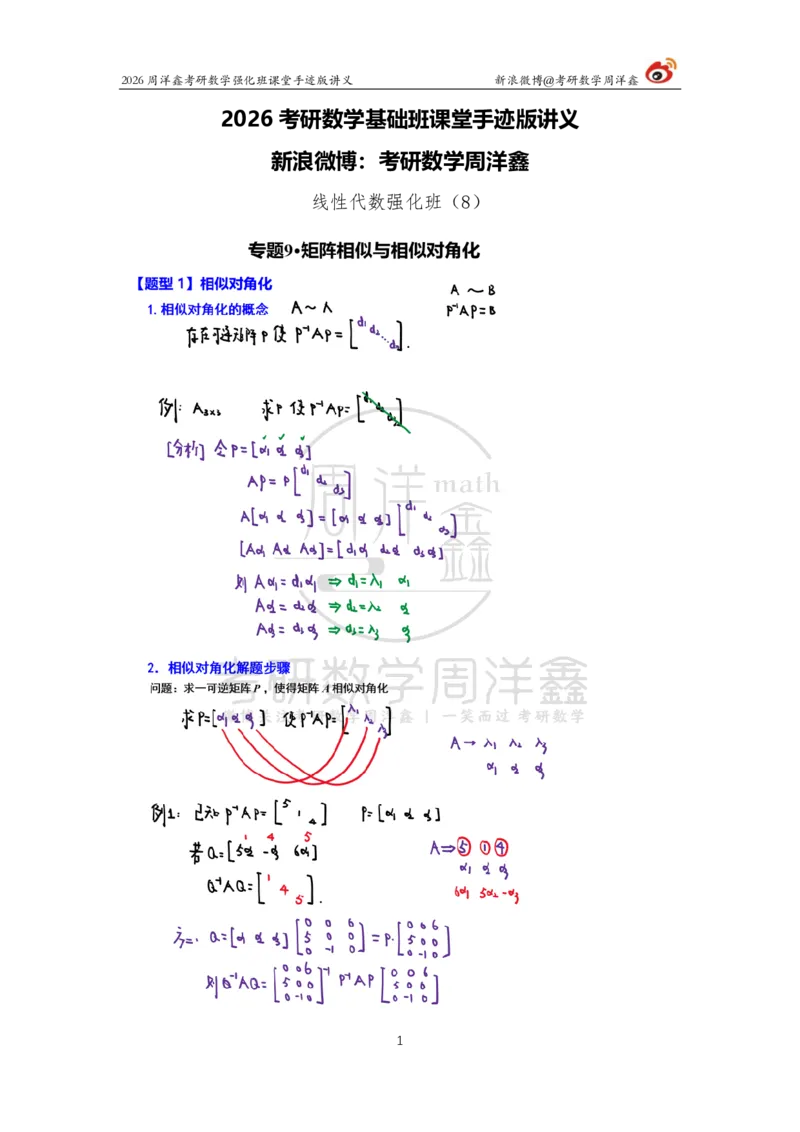 2026周洋鑫考研数学强化班课堂手迹版讲义 新浪微博@考研数学周洋鑫
2026考研数学基础班课堂手迹版讲义
新浪微博：考研数学周洋鑫
线性代数强化班（8）
专题9•矩阵相似与相似对角化
【题型1】相似对角化
A ~ B
1.相似对角化的概念 A ~ Λ
P⁻¹AP=B
存在可逆矩阵P使 P⁻¹AP=[d₁ d₂ ⋱ d₃].
例: A₃ₓ₃ 求P使P⁻¹AP=[d₁ d₂ d₃]
[分析] 令P=[α₁ α₂ α₃]
AP=P[d₁ d₂ d₃]
A[α₁ α₂ α₃]=[α₁ α₂ α₃][d₁ d₂ d₃]
[Aα₁ Aα₂ Aα₃]=[d₁α₁ d₂α₂ d₃α₃]
则 Aα₁=d₁α₁ ⇒ d₁=λ₁ α₁
Aα₂=d₂α₂ ⇒ d₂=λ₂ α₂
Aα₃=d₃α₃ ⇒ d₃=λ₃ α₃
周洋鑫 math
2．相似对角化解题步骤
问题：求一可逆矩阵P，使得矩阵A相似对角化
考研数学周洋鑫
考研数学周洋鑫 | 一笑而过 考研数学
求P=[α₁ α₂ α₃] 使P⁻¹AP=[λ₁ λ₂ λ₃]
A → λ₁ λ₂ λ₃
α₁ α₂ α₃
例1: 已知P⁻¹AP=[5 1 4] P=[α₁ α₂ α₃]
1 4 5
若Q=[5α₂ -α₃ 6α₁]
A⇒ 5 1 4
α₁ α₂ α₃
Q⁻¹AQ=[1 4 5].
6α₁ 5α₂ -α₃
方二: Q=[α₁ α₂ α₃][0 0 6; 5 0 0; 0 -1 0]=P·[0 0 6; 5 0 0; 0 -1 0]
则Q⁻¹AQ=[0 0 6; 5 0 0; 0 -1 0]⁻¹ P⁻¹AP[0 0 6; 5 0 0; 0 -1 0]
1